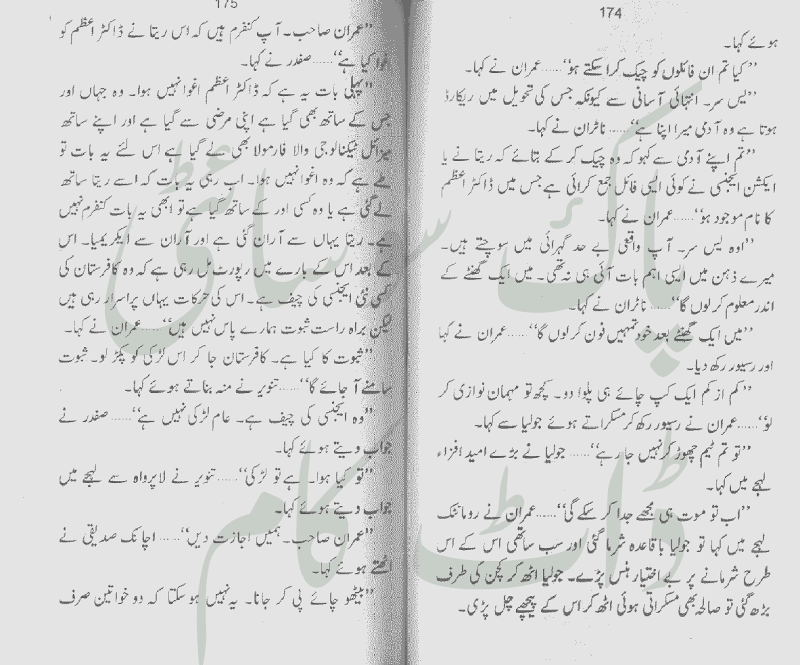 174
ہوئے کہا۔
’’کیا تم ان فائلوں کو چیک کرا سکتے ہو‘‘......عمران نے کہا۔
’’یس سر۔ انتہائی آسانی سے کیونکہ جس کی تحویل میں ریکارڈ
ہوتا ہے وہ آدمی میرا اپنا ہے‘‘...... ناٹران نے کہا۔
’’تم اپنے آدمی سے کہو کہ وہ چیک کر کے بتائے کہ ریتا نے یا
ایکشن ایجنسی نے کوئی ایسی فائل جمع کرائی ہے جس میں ڈاکٹر اعظم
کا نام موجود ہو‘‘......عمران نے کہا۔
’’اوہ یس سر۔ آپ واقعی بے حد گہرائی میں سوچتے ہیں۔
میرے ذہن میں ایسی اہم بات آئی ہی نہ تھی۔ میں ایک گھنٹے کے
اندر معلوم کر لوں گا‘‘...... ناٹران نے کہا۔
’’میں ایک گھنٹے بعد خود تمہیں فون کر لوں گا‘‘......عمران نے کہا
اور رسیور رکھ دیا۔
’’کم از کم ایک کپ چائے ہی پلوا دو۔ کچھ تو مہمان نوازی کر
لو‘‘......عمران نے رسیور رکھ کر مسکراتے ہوئے جولیا سے کہا۔
’’تو تم ٹیم چھوڑ کر نہیں جا رہے‘‘...... جولیا نے بڑے امید افزاء
لہجے میں کہا۔
’’اب تو موت ہی مجھے جدا کر سکے گی‘‘......عمران نے رومانٹک
لہجے میں کہا تو جولیا باقاعدہ شرما گئی اور سب ساتھی اس کے اس
طرح شرمانے پر بے اختیار ہنس پڑے۔ جولیا اٹھ کر کچن کی طرف
بڑھ گئی تو صالحہ بھی مسکراتی ہوئی اٹھ کر اس کے پیچھے چل پڑی۔
175
’’عمران صاحب۔ آپ کنفرم ہیں کہ اس ریتا نے ڈاکٹر اعظم کو
اغوا کیا ہے‘‘......صفدر نے کہا۔
’’پہلی بات یہ ہے کہ ڈاکٹر اعظم اغوا نہیں ہوا۔ وہ جہاں اور
جس کے ساتھ بھی گیا ہے اپنی مرضی سے گیا ہے اور اپنے ساتھ
میزائل ٹیکنالوجی والا فارمولا بھی لے گیا ہے اس لئے یہ بات تو
طے ہے کہ وہ اغوا نہیں ہوا۔ اب رہی یہ بات کہ اسے ریتا ساتھ
لے گئی ہے یا وہ کسی اور کے ساتھ گیا ہے تو ابھی یہ بات کنفرم نہیں
ہے۔ ریتا یہاں سے آران گئی ہے اور آران سے ایکریمیا۔ اس
کے بعد اس کے بارے میں رپورٹ مل رہی ہے کہ وہ کافرستان کی
کسی نئی ایجنسی کی چیف ہے۔ اس کی حرکات یہاں پراسرار رہی ہیں
لیکن براہ راست ثبوت ہمارے پاس نہیں ہیں‘‘......عمران نے کہا۔
’’ثبوت کا کیا ہے۔ کافرستان جا کر اس لڑکی کو پکڑ لو۔ ثبوت
سامنے آ جائے گا‘‘......تنویر نے منہ بناتے ہوئے کہا۔
’’وہ ایجنسی کی چیف ہے۔ عام لڑکی نہیں ہے‘‘......صفدر نے
جواب دیتے ہوئے کہا۔
’’تو کیا ہوا۔ ہے تو لڑکی‘‘......تنویر نے لاپرواہ سے لہجے میں
جواب دیتے ہوئے کہا۔
’’عمران صاحب۔ ہمیں اجازت دیں‘‘...... اچانک صدیقی نے
اٹھتے ہوئے کہا۔
’’بیٹھو چائے پی کر جانا۔ یہ نہیں ہو سکتا کہ دو خواتین صرف
پاک سوسائٹی
ڈاٹ کام